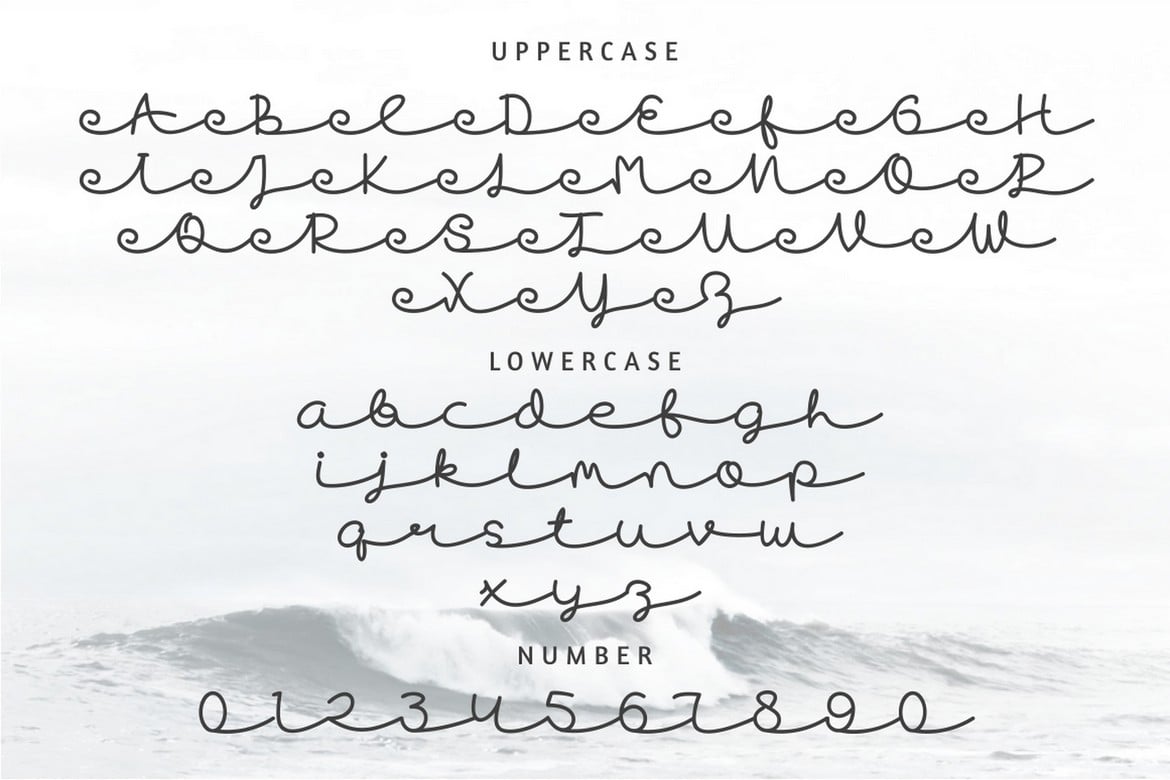 UPPERCASE
ABCDEFGH
IJKLMNOP
QRSTUVW
XYZ
LOWERCASE
abcdefgh
ijklmnop
qrstuvw
xyz
NUMBER
01234567890